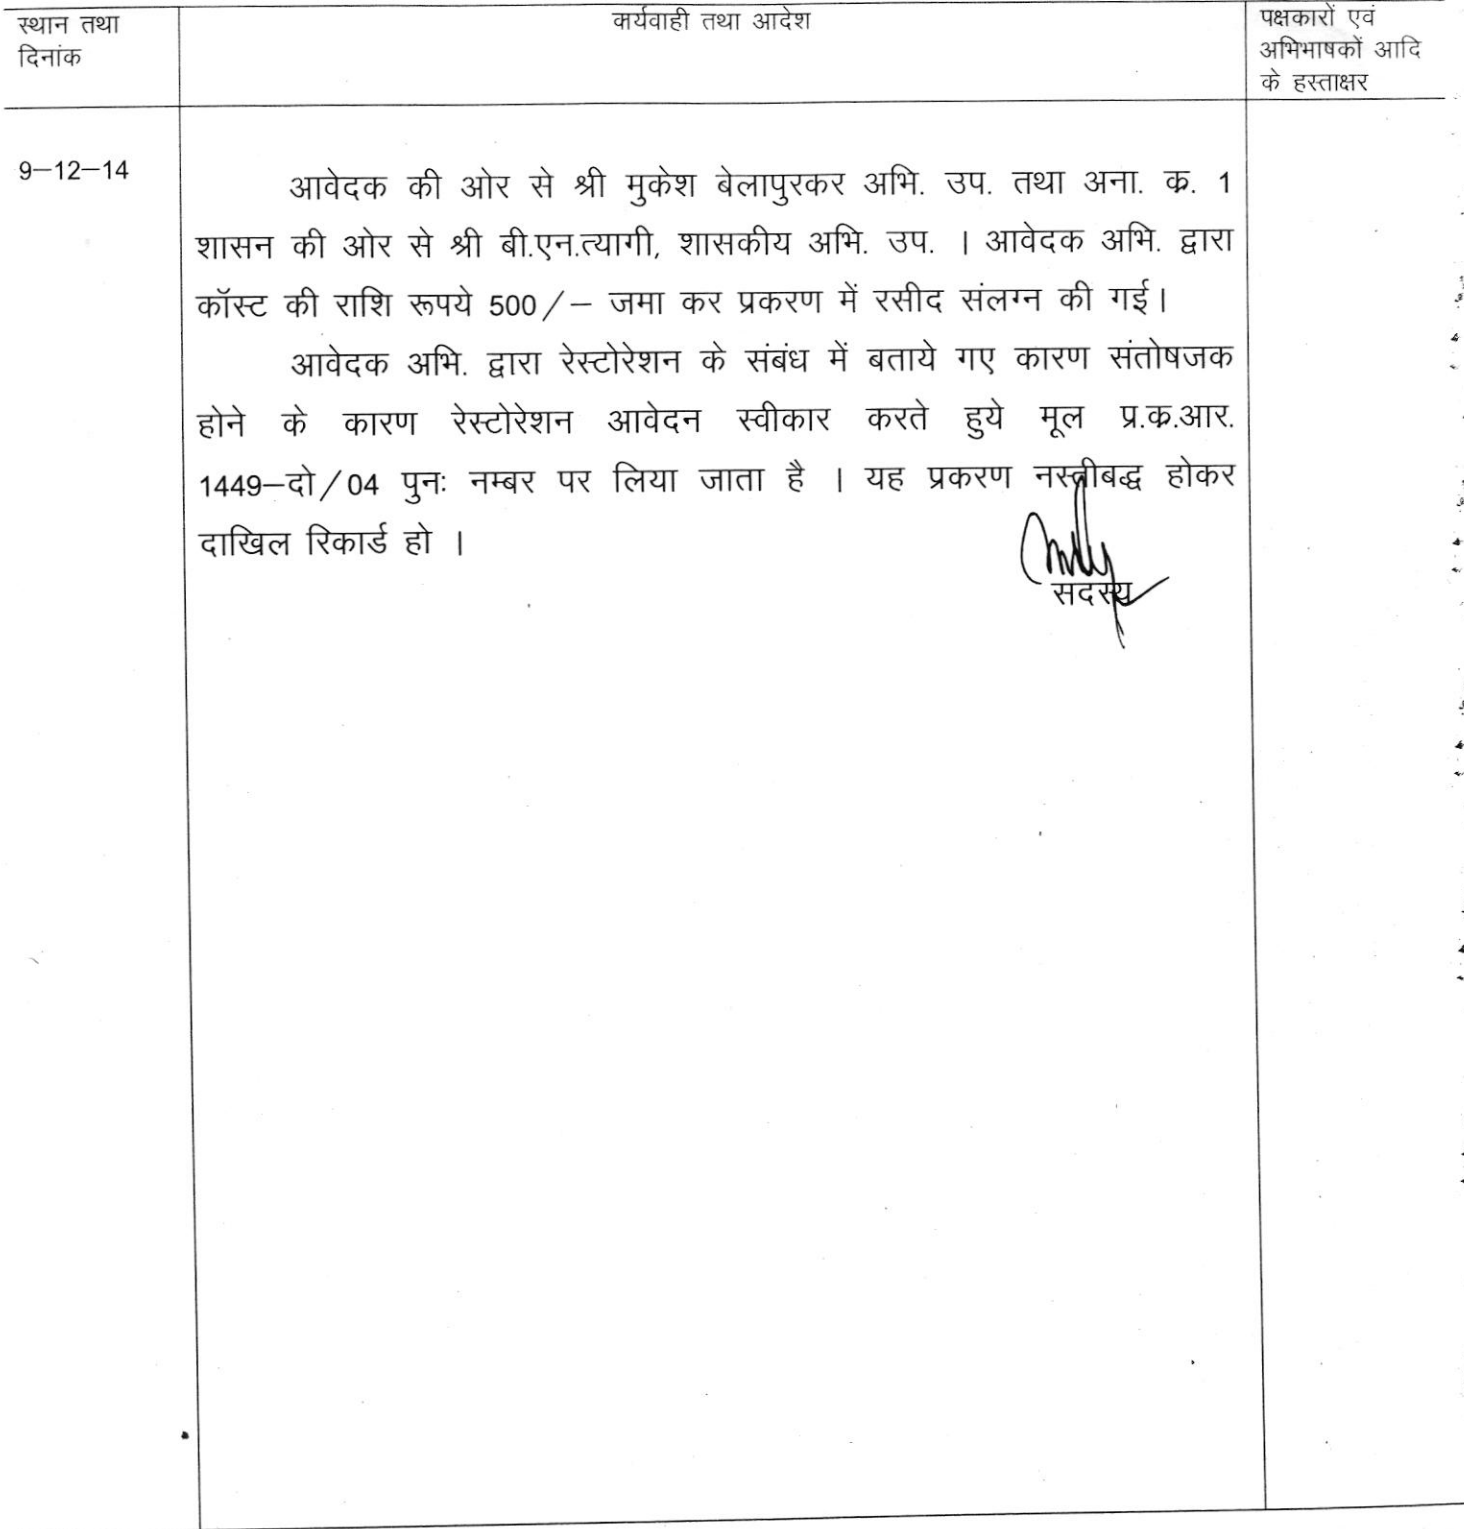 स्थान तथा
दिनांक
कार्यवाही तथा आदेश
पक्षकारों एवं
अभिभाषकों आदि
के हस्ताक्षर
9–12–14
आवेदक की ओर से श्री मुकेश बेलापुरकर अभि. उप. तथा अना. क्र. 1
शासन की ओर से श्री बी.एन.त्यागी, शासकीय अभि. उप. । आवेदक अभि. द्वारा
कॉस्ट की राशि रूपये 500/– जमा कर प्रकरण में रसीद संलग्न की गई।
आवेदक अभि. द्वारा रेस्टोरेशन के संबंध में बताये गए कारण संतोषजक
होने के कारण रेस्टोरेशन आवेदन स्वीकार करते हुये मूल प्र.क्र.आर.
1449–दो/04 पुनः नम्बर पर लिया जाता है । यह प्रकरण नस्तीबद्ध होकर
दाखिल रिकार्ड हो ।
सदस्य